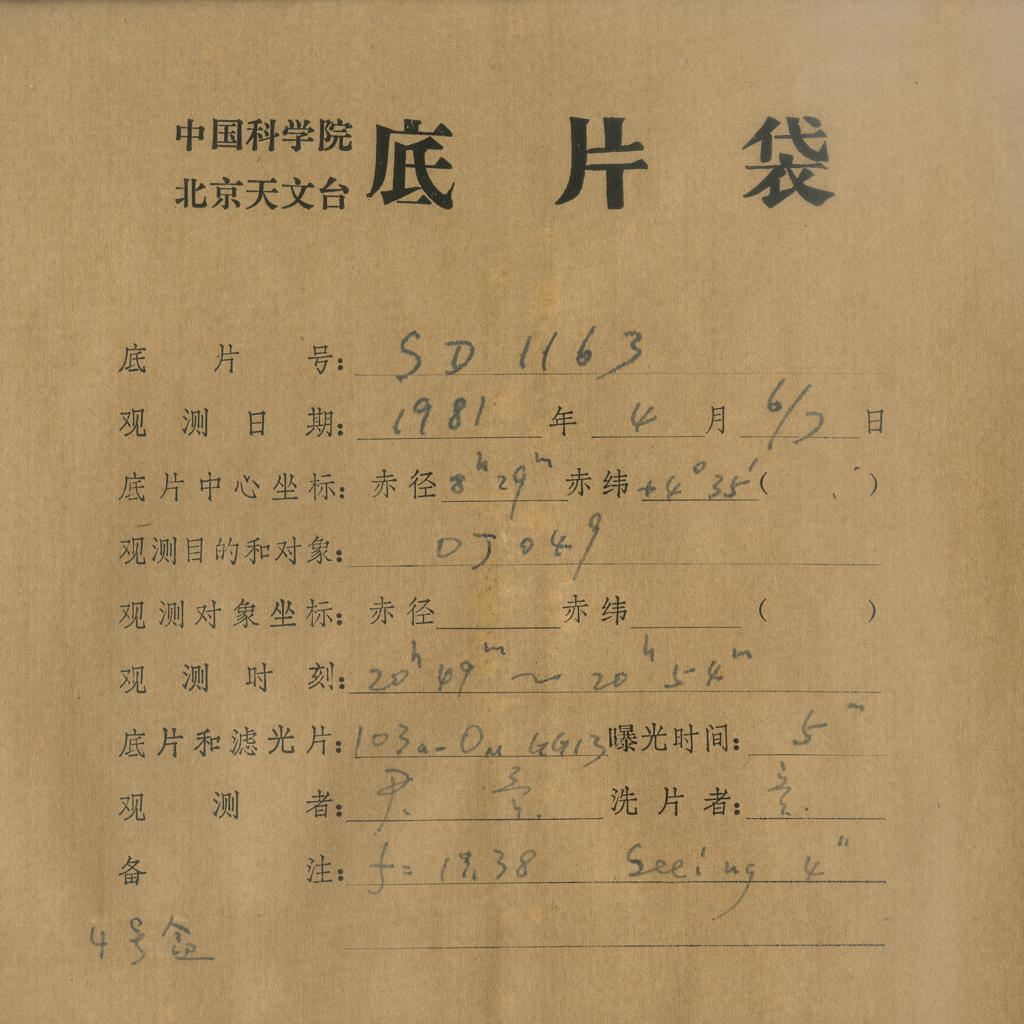 中国科学院
北京天文台
底片袋
底片号: SD 1163
观测日期: 1981 年 4 月 6/7 日
底片中心坐标: 赤径 8ʰ 29ᵐ 赤纬 +4° 35′ ( )
观测目的和对象: OJ 049
观测对象坐标: 赤径 赤纬 ( )
观测时刻: 20ʰ 49ᵐ ~ 20ʰ 54ᵐ
底片和滤光片: 103a-O GG13 曝光时间: 5ᵐ
观测者: 洗片者:
备注: f= 17.38 Seeing 4″
4号盒